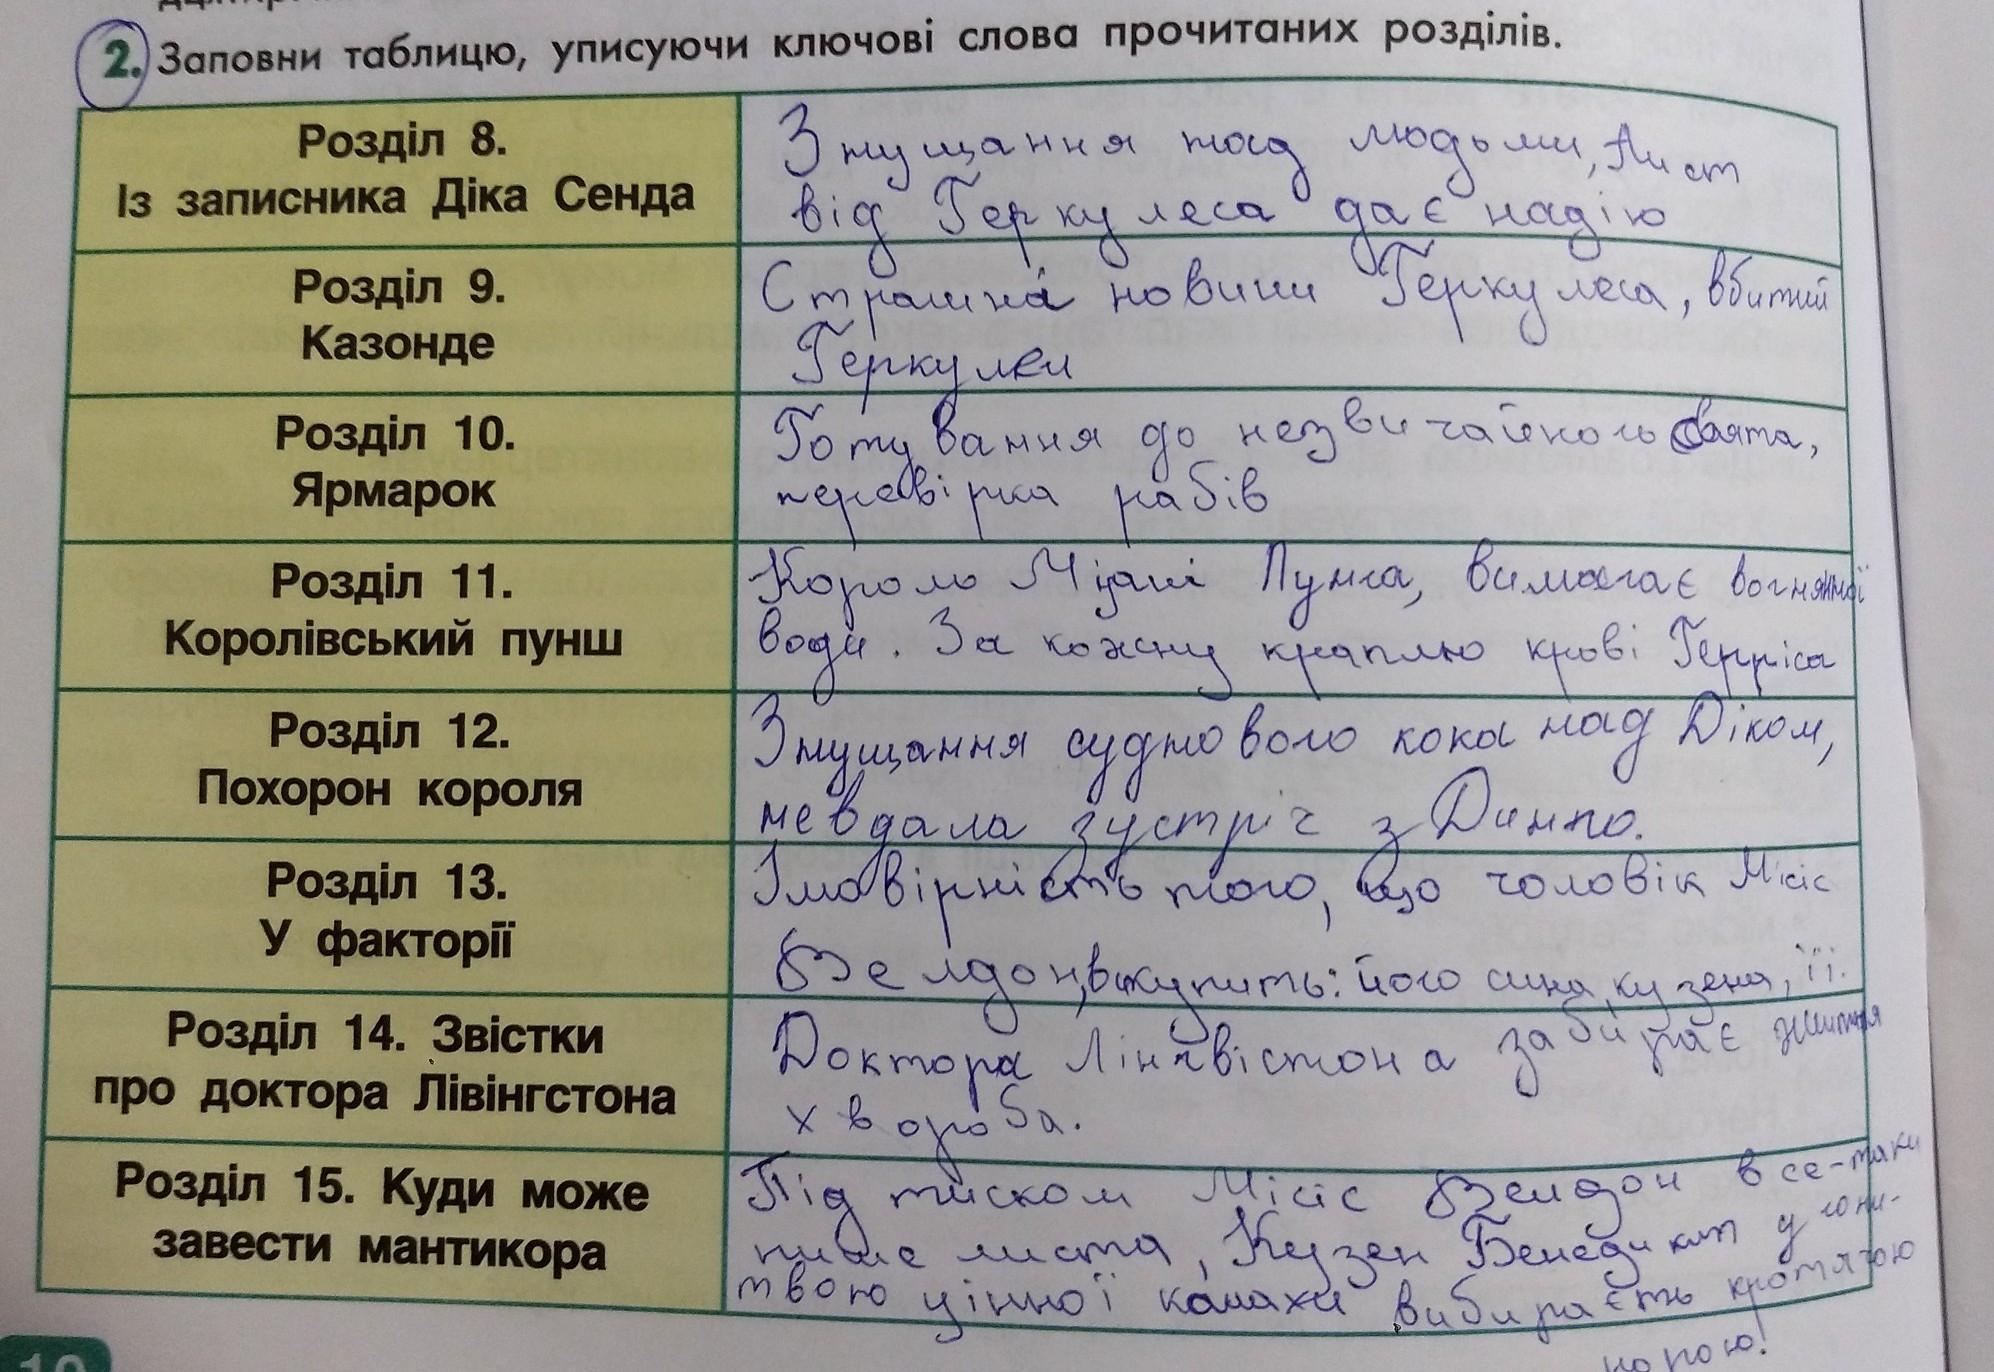 2. Заповни таблицю, уписуючи ключові слова прочитаних розділів.
Розділ 8.
Із записника Діка Сенда
Знущання над людьми, Лист
від Геркулеса дає надію
Розділ 9.
Казонде
Страшна новини Геркулеса, вбитий
Розділ 10.
Ярмарок
Готування до незвичайного свята,
перевірка рабів
Розділ 11.
Королівський пунш
Король Лунга, вимагає
води. За кожну краплю крові Герріса
Розділ 12.
Похорон короля
Знущання суднового кока над Діком,
невдала зустріч з Динго.
Розділ 13.
У факторії
Імовірність того, що чоловік Місіс
Велдон, викупить: його сина, кузена, її.
Розділ 14. Звістки
про доктора Лівінгстона
Доктора Лінгвістона забирає життя
хвороба.
Розділ 15. Куди може
завести мантикора
Під тиском Місіс Велдон все-таки
пише листа, Кузен Бенедикт у гони-
твою цінної комахи вибирається кротячою
норою!
10